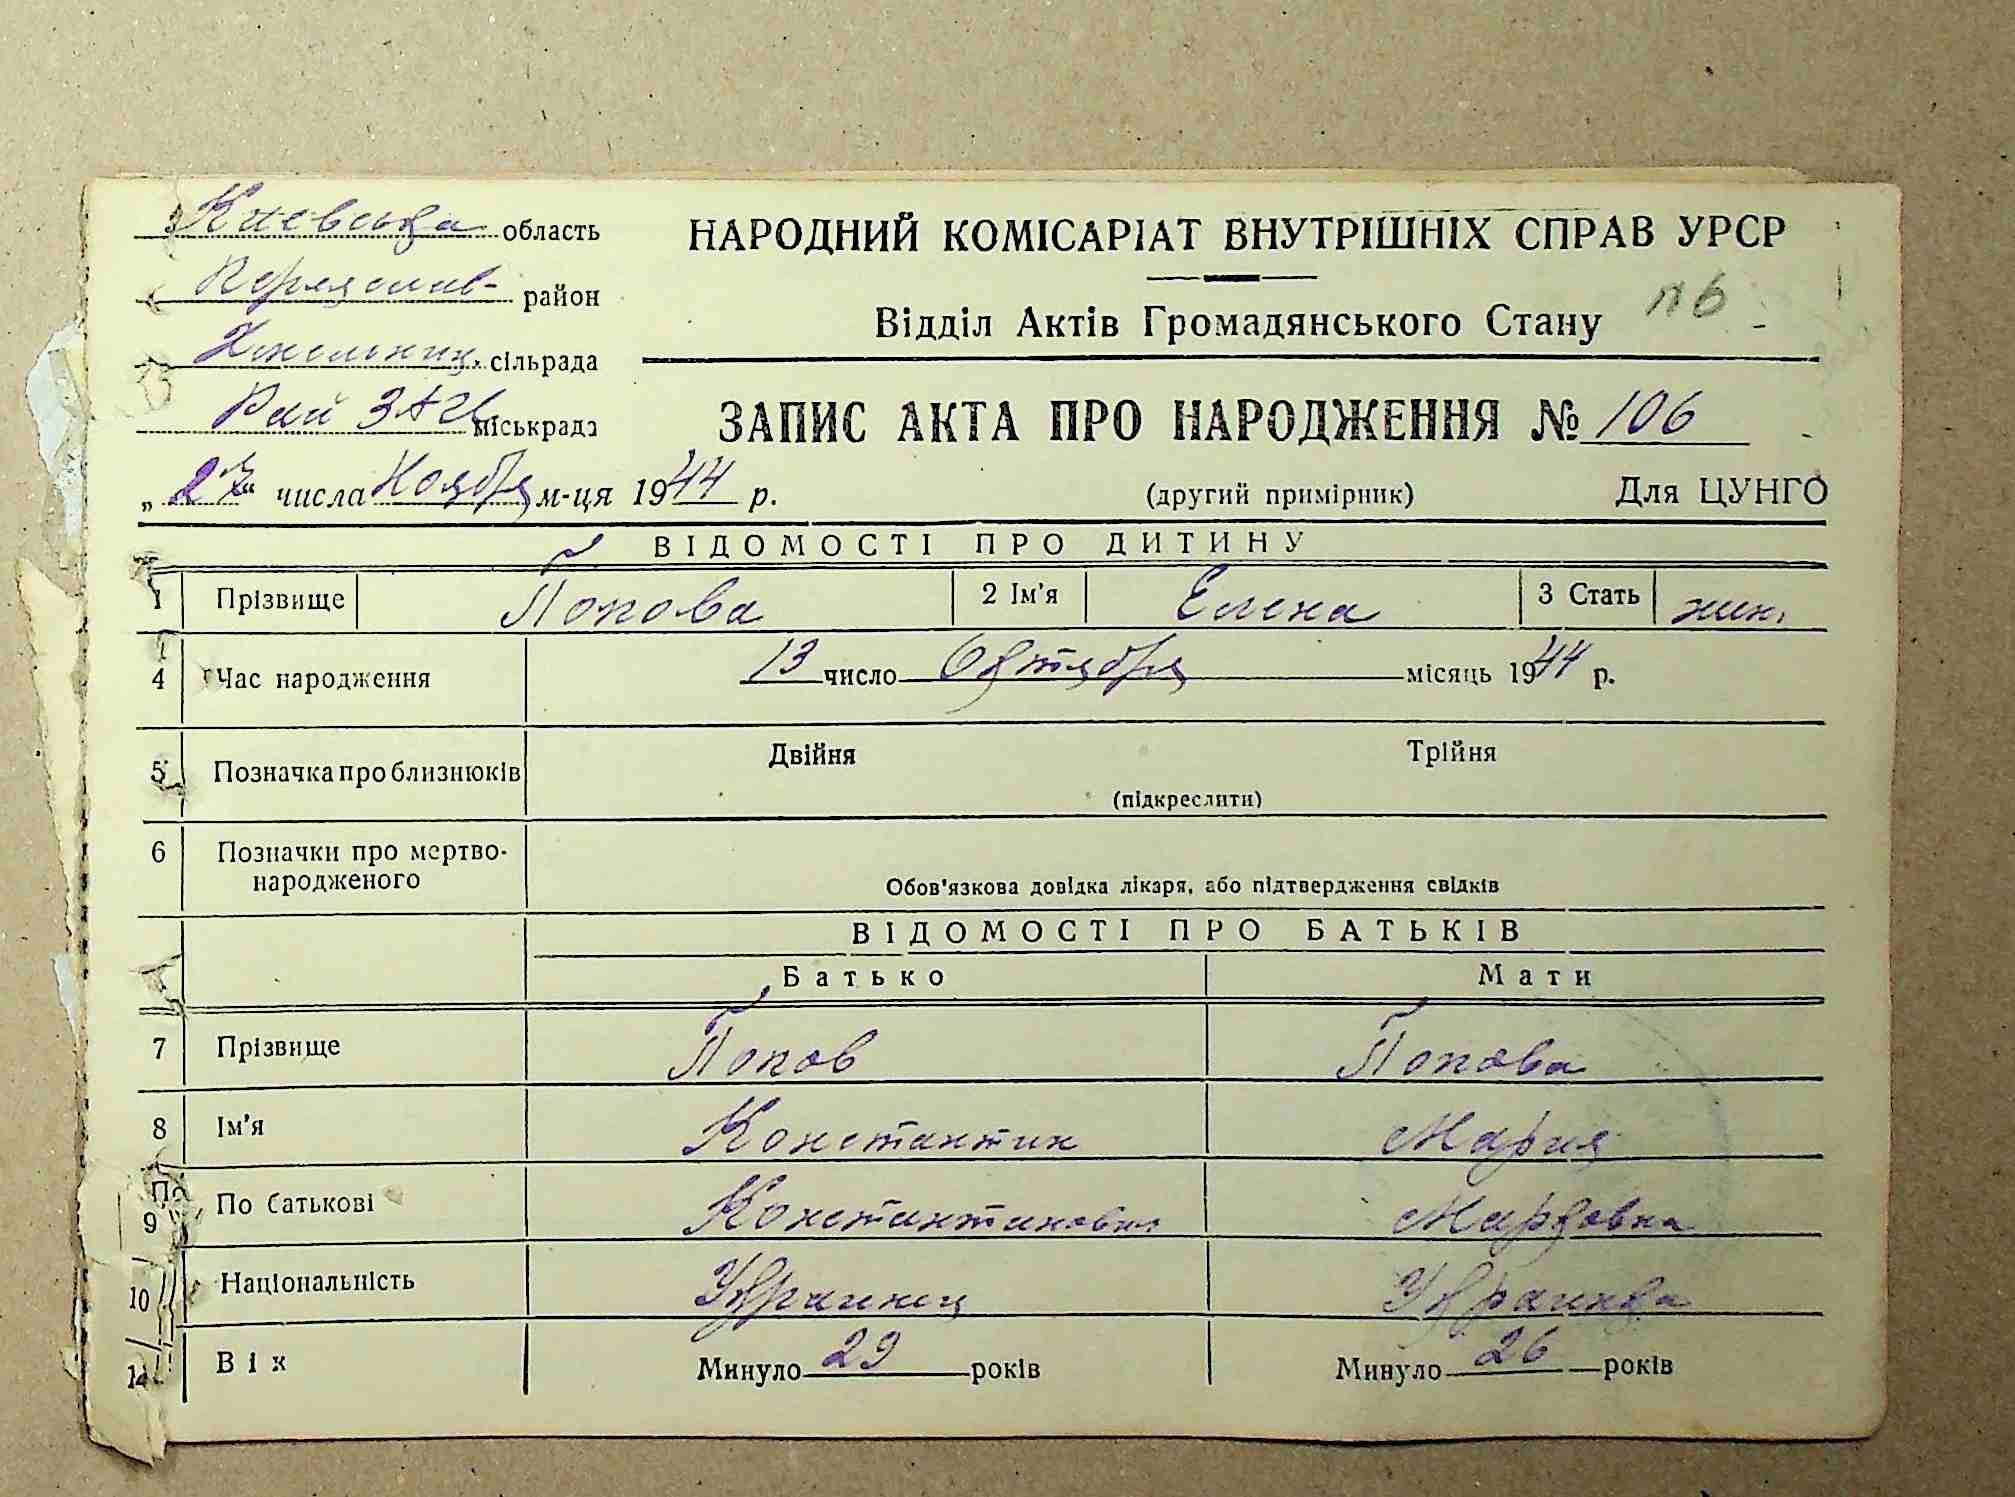 Киевська область
Переяслав- район
Хмельниц. сільрада
Рай ЗАГС міськрада
НАРОДНИЙ КОМІСАРІАТ ВНУТРІШНІХ СПРАВ УРСР
Відділ Актів Громадянського Стану
пб
ЗАПИС АКТА ПРО НАРОДЖЕННЯ № 106
„27“ числа Ноября м-ця 1944 р.
(другий примірник) Для ЦУНГО
ВІДОМОСТІ ПРО ДИТИНУ
1 Прізвище Попова 2 Ім'я Елена 3 Стать жин.
4 Час народження 13 число Октября місяць 1944 р.
5 Позначка про близнюків Двійня Трійня
(підкреслити)
6 Позначки про мертво-
народженого
Обов'язкова довідка лікаря, або підтвердження свідків
ВІДОМОСТІ ПРО БАТЬКІВ
Батько Мати
7 Прізвище Попов Попова
8 Ім'я Константин Мария
9 По батькові Константинович Марковна
10 Національність Украинец Украинка
11 Вік Минуло 29 років Минуло 26 років